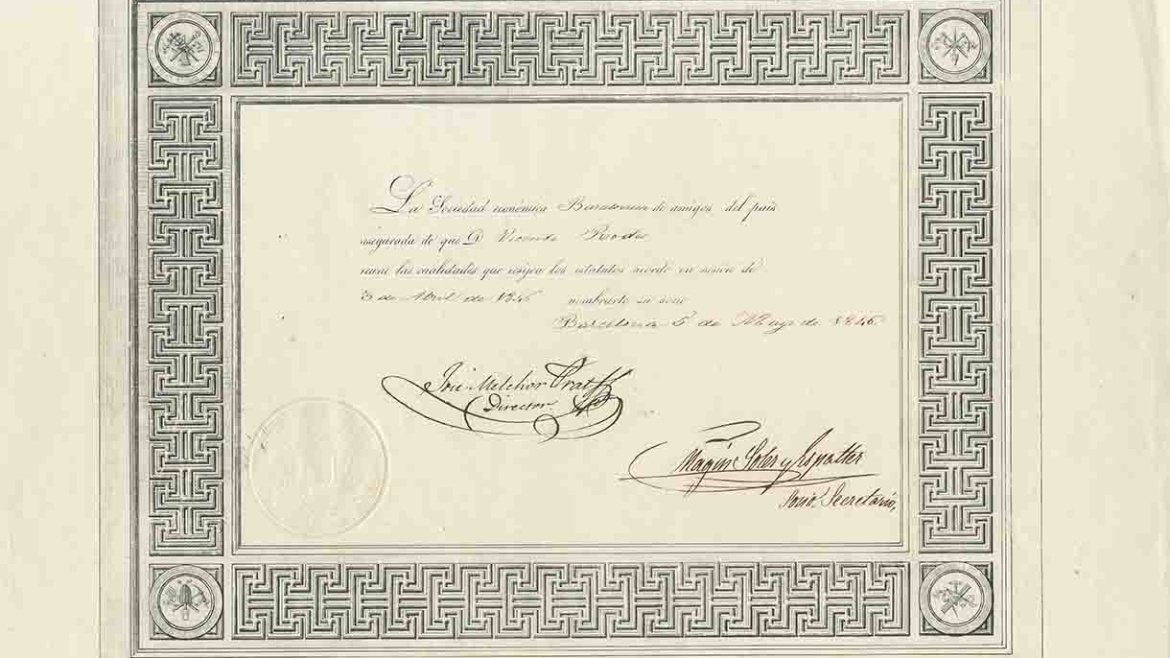 La Sociedad económica Barcelonesa de amigos del pais
asegurada de que D. Vicente Rodes
reune las cualidades que exijen los estatutos acordó en sesion de
3 de Abril de 1846 nombrarle su socio
Barcelona 5 de Mayo de 1846.
José Melchor Prat
Director
Magin Soler y Espalter
Socio Secretario,